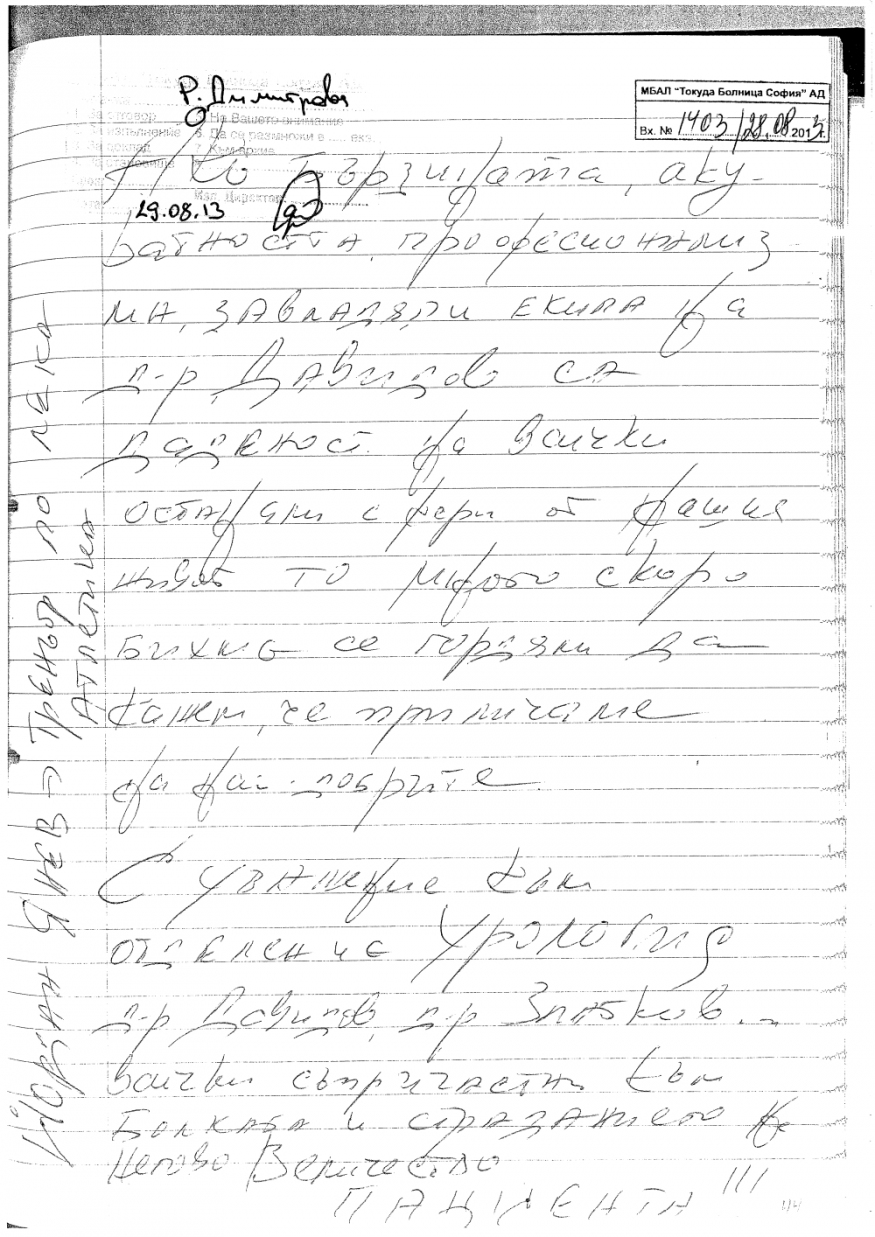 Р. Димитрова
МБАЛ "Токуда Болница София" АД
Вх. № 1403 / 28.08.2013 г.
За отговор
На Вашето внимание
Да се размножи в ..... екз.
Към архив
Мед. Директор
29.08.13
Ако бързината, аку-
ратността, професионализ
ма, завладяли екипа на
д-р Давидов са
даденост на всички
останали сфери от нашия
живот то много скоро
бихме се гордяли да
кажем, че приличаме
на най-добрите.
С уважение към
отделение Урология
д-р Давидов, д-р Златков..
всички съпричастни към
болката и страданието на
Негово Величество
ПАЦИЕНТА !!!
Йордан Янев → Треньор по лека
атлетика